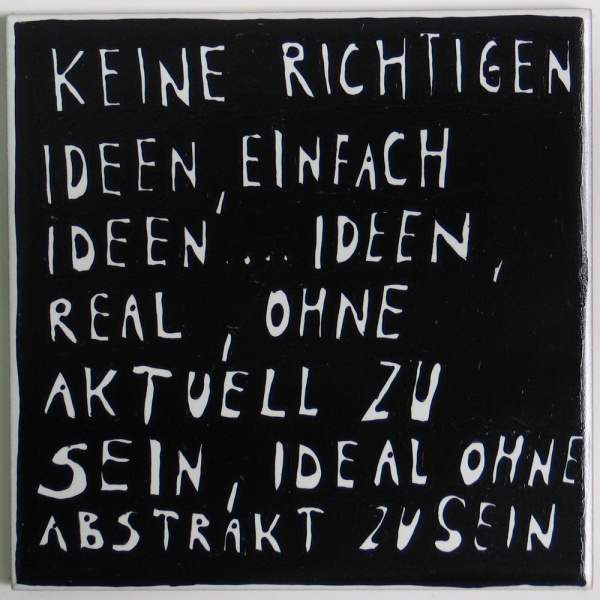 KEINE RICHTIGEN
IDEEN, EINFACH
IDEEN ... IDEEN,
REAL, OHNE
AKTUELL ZU
SEIN, IDEAL OHNE
ABSTRAKT ZU SEIN